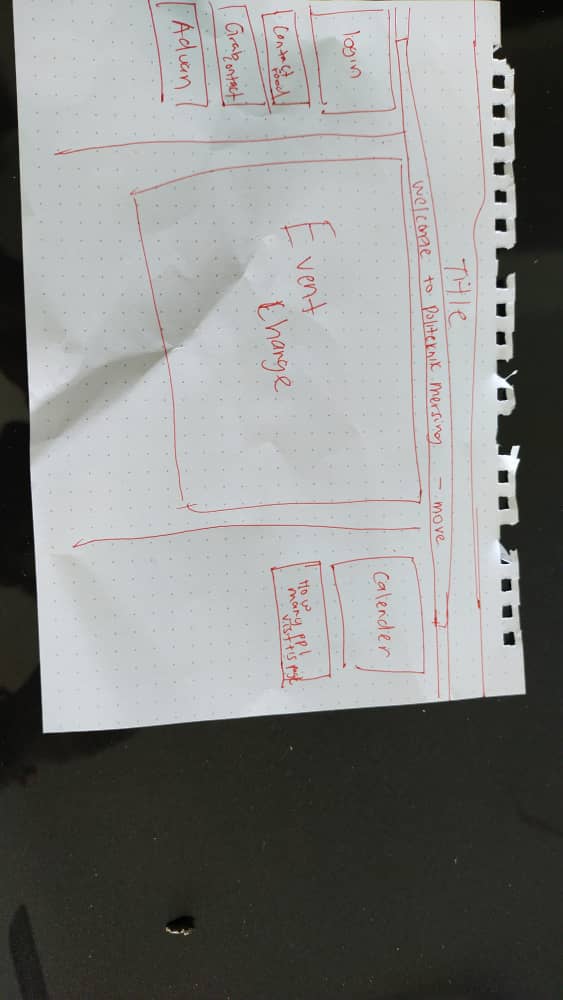 Title
welcome to Politeknik mersing - move
login
Contact
Food
Grab contact
Aduan
Event
Change
Calender
How
many ppl
visit tis page